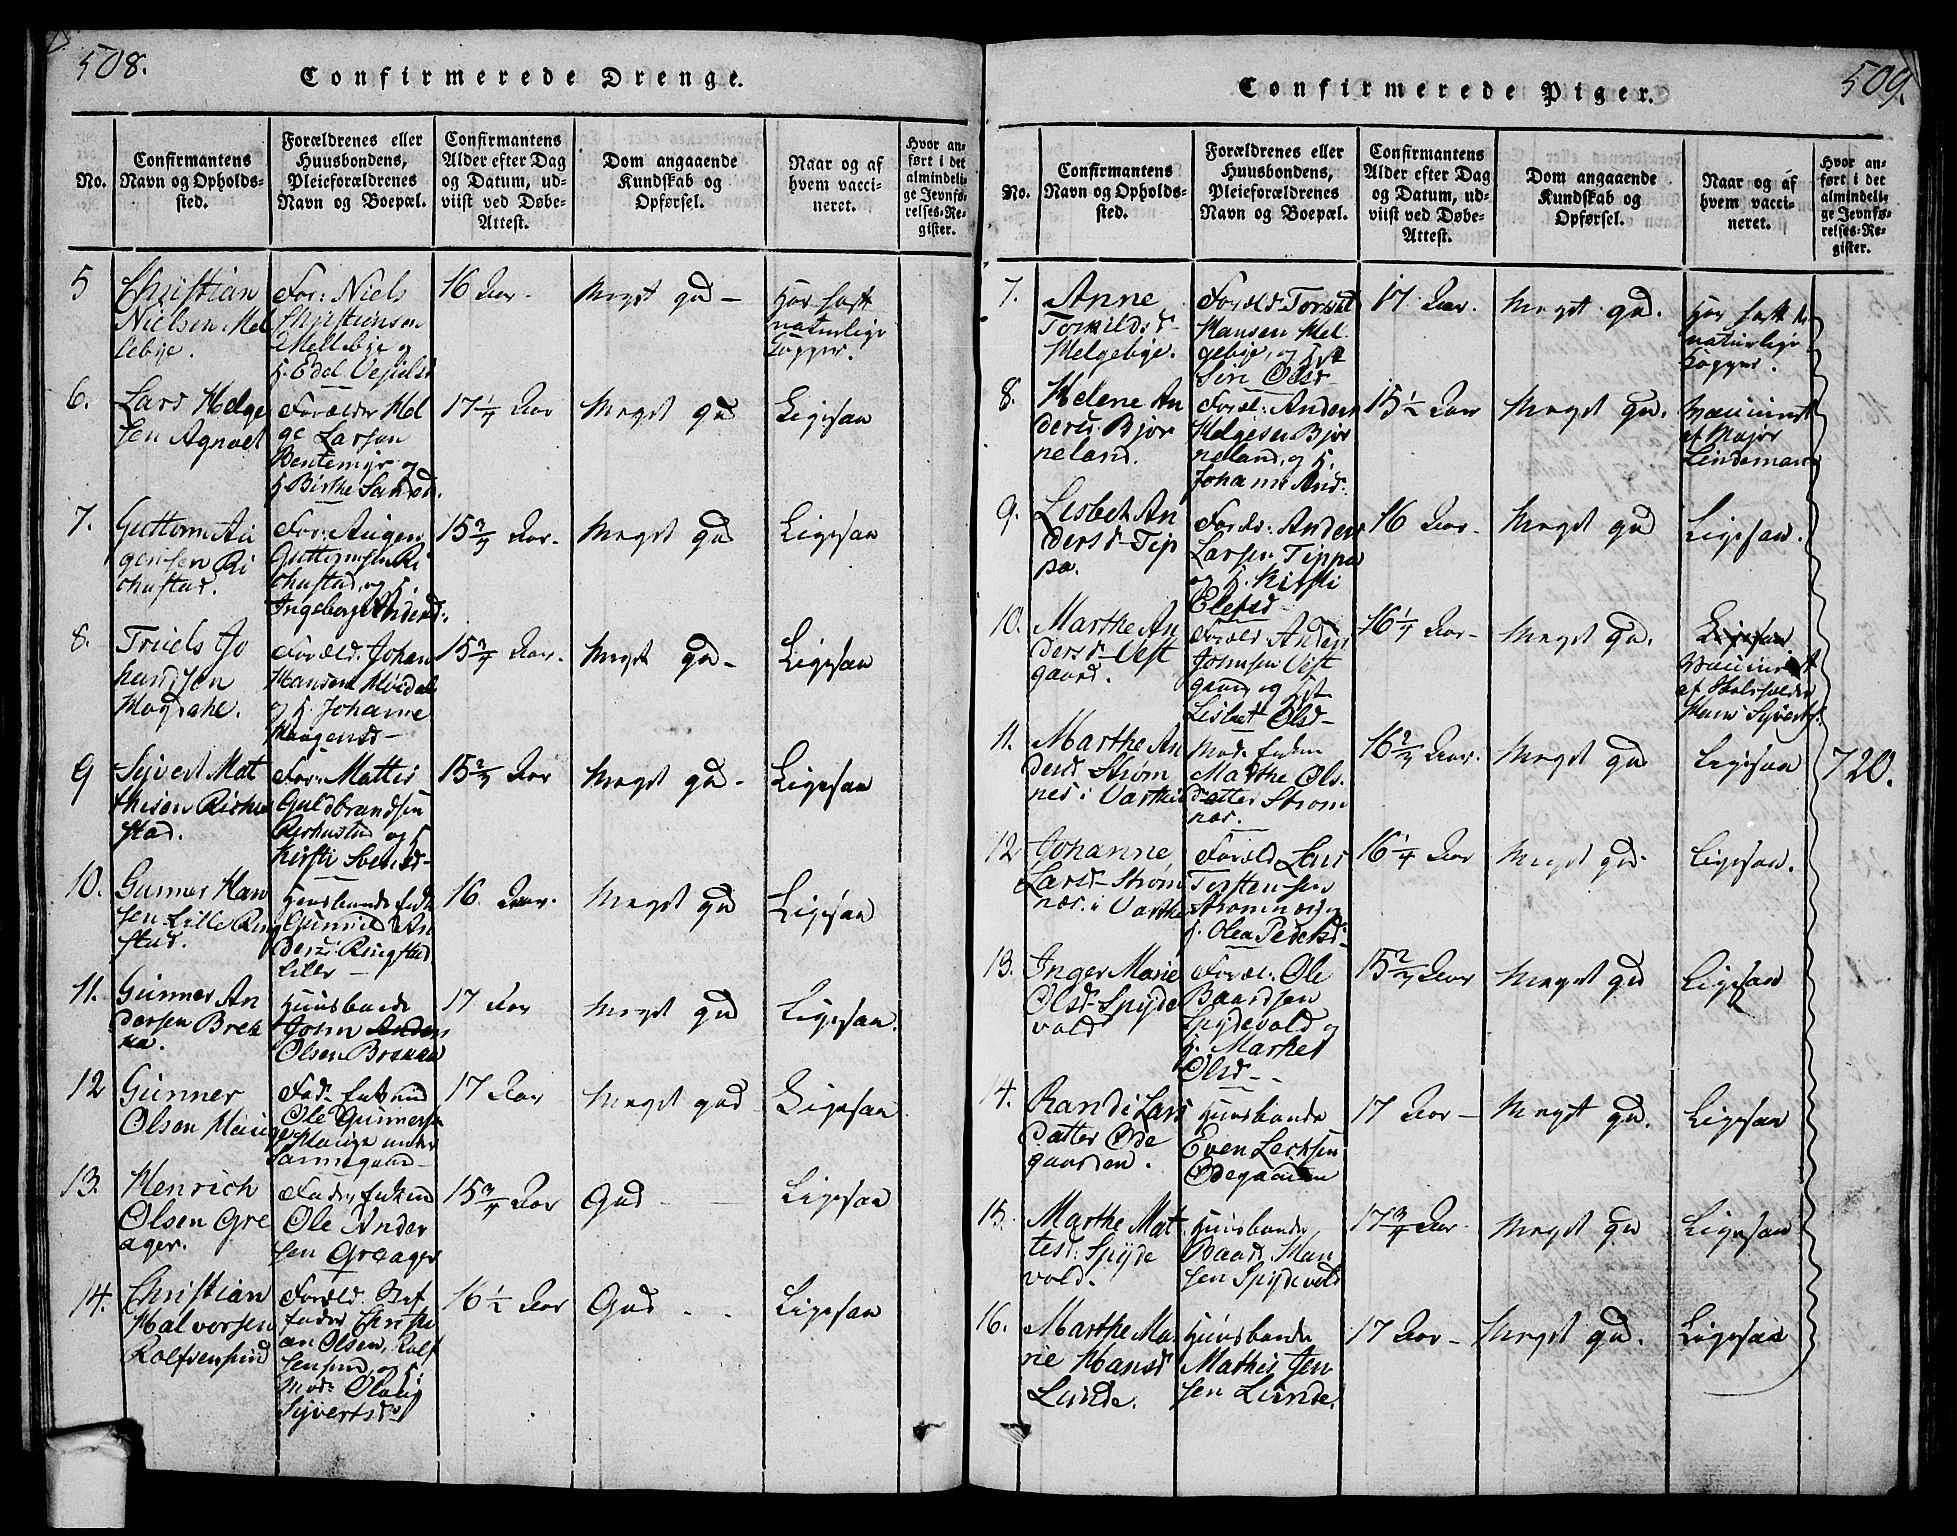 508.
Confirmerede Drenge.
No.
Confirmantens
Navn og Opholds-
sted.
Forældrenes eller
Huusbondens,
Pleieforældrenes
Navn og Boepæl.
Confirmantens
Alder efter Dag
og Datum, ud-
viist ved Døbe-
Attest.
Dom angaaende
Kundskab og
Opførsel.
Naar og af
hvem vacci-
neret.
Hvor an-
ført i det
almindeli-
ge Jevnfø-
relses-Re-
gister.
5
Christian
Nielsen Mel
lebye.
For: Niels
Christiansen
Mellebye og
16 Aar.
Meget god
Har havt
naturlige
Kopper.
6.
Lars Helge
sen
Forælder Hel
ge Larsen
Bentemyr og
h. Birthe
17 1/4 Aar
Meget god
Ligesaa
7.
Guttorm Au
gensen Ri
chustad.
For: Augen
Guttormsen Ri
chustad, og h.
Ingeborg Andersd:
15 3/4 Aar.
Meget god
Ligesaa
8.
Truels Jo
handsen
Foræld: Johan
Hansen
og h. Johanne
Mogensd
15 3/4 Aar.
Meget god
Ligesaa
9
Syvert Mat
thisen Richu
stad.
For: Mattis
Guldbrandsen
Richustad og h.
Kirsti Svensd
15 3/4 Aar
Meget god
Ligesaa
10.
Gunner Han
sen Lille Ring
stad.
Huusbonde Enke
Gunnild An
dersd: Ringstad
Lille
16 Aar.
Meget god
Ligesaa
11.
Gunner An
dersen Brek
ka.
Huusbonde
John Anders
Olsen Brekka
17 Aar
Meget god
Ligesaa.
12
Gunner
Olsen Hauge
Fad: Enkem
Ole Gunners
Hauge under
17 Aar
Meget god
Ligesaa
13.
Henrich
Olsen Gre
ager.
Fader Enkem
Ole Ander
sen Greager
15 3/4 Aar
God
Ligesaa
14.
Christian
Halvorsen
Rolfsenhund
Foræld. Stef
fader Christi
an Olsen, Rolf
senhund, og
Mod: Olaug
Syvertsd
16 1/2 Aar
God
Ligesaa
509.
Confirmerede Piger.
No.
Confirmantens
Navn og Opholds-
sted.
Forældrenes eller
Huusbondens,
Pleieforældrenes
Navn og Boepæl.
Confirmantens
Alder efter Dag
og Datum, ud-
viist ved Døbe-
Attest.
Dom angaaende
Kundskab og
Opførsel.
Naar og af
hvem vacci-
neret.
Hvor an-
ført i det
almindeli-
ge Jevnfø-
relses-Re-
gister.
7.
Anne
Torkildsd
Helgebye.
Foræld: Torkil
Hansen Hel
gebye, og Hst
Siri Olsd
17. Aar.
Meget god.
Har havt de
naturlige
Kopper.
8.
Helene An
dersd: Bjør
neland.
Foræl: Anders
Helgesen Bjør
neland, og h.
Johanne And:
15 1/2 Aar
Meget god.
Vaccineret
af Major
Lindeman
9.
Lisbet An
dersd Tip
pa.
Foræ: Anders
Larsen Tippa
og h. Kirsti
Elefsd
16 Aar.
Meget god
Ligesaa.
10.
Marthe An
dersd Vest
gaard.
Foræld Anders
Johnsen Vest
gaard og Hst
Lisbet Olsd
16 1/4 Aar
Meget god.
Ligesaa
Vaccineret
af
Hans Syverts.
11.
Marthe An
dersd Strøm
nes i Varteig
Mod: Enken
Marthe Ols
datter Strøm
næs.
16 3/4 Aar.
Meget god
Ligesaa
720.
12
Johanne
Larsd Strøm
næs. i Varteig
Foræld Lars
Torstensen
Strømnæs og
h. Olea Pedersd
16 1/4 Aar
Meget god.
Ligesaa.
13.
Inger Marie
Olsd Spyde
vold
Foræl: Ole
Baardsen
Spydevold og
h. Marthe
Olsd
15 3/4 Aar
Meget god
Ligesaa
14.
Randi Lars
datter Øde
gaarden.
Huusbonde
Even
Ødegaarden
17 Aar
Meget god.
Ligesaa
15.
Marthe Mat
tisd: Spyde
vold.
Huusbonde
Baard Han
sen Spydevold
17 3/4 Aar.
Meget god
Ligesaa
16.
Marthe Ma
rie Hansd
Lunde.
Huusbonde
Mathis Jen
sen Lunde.
17 Aar
Meget god.
Ligesaa